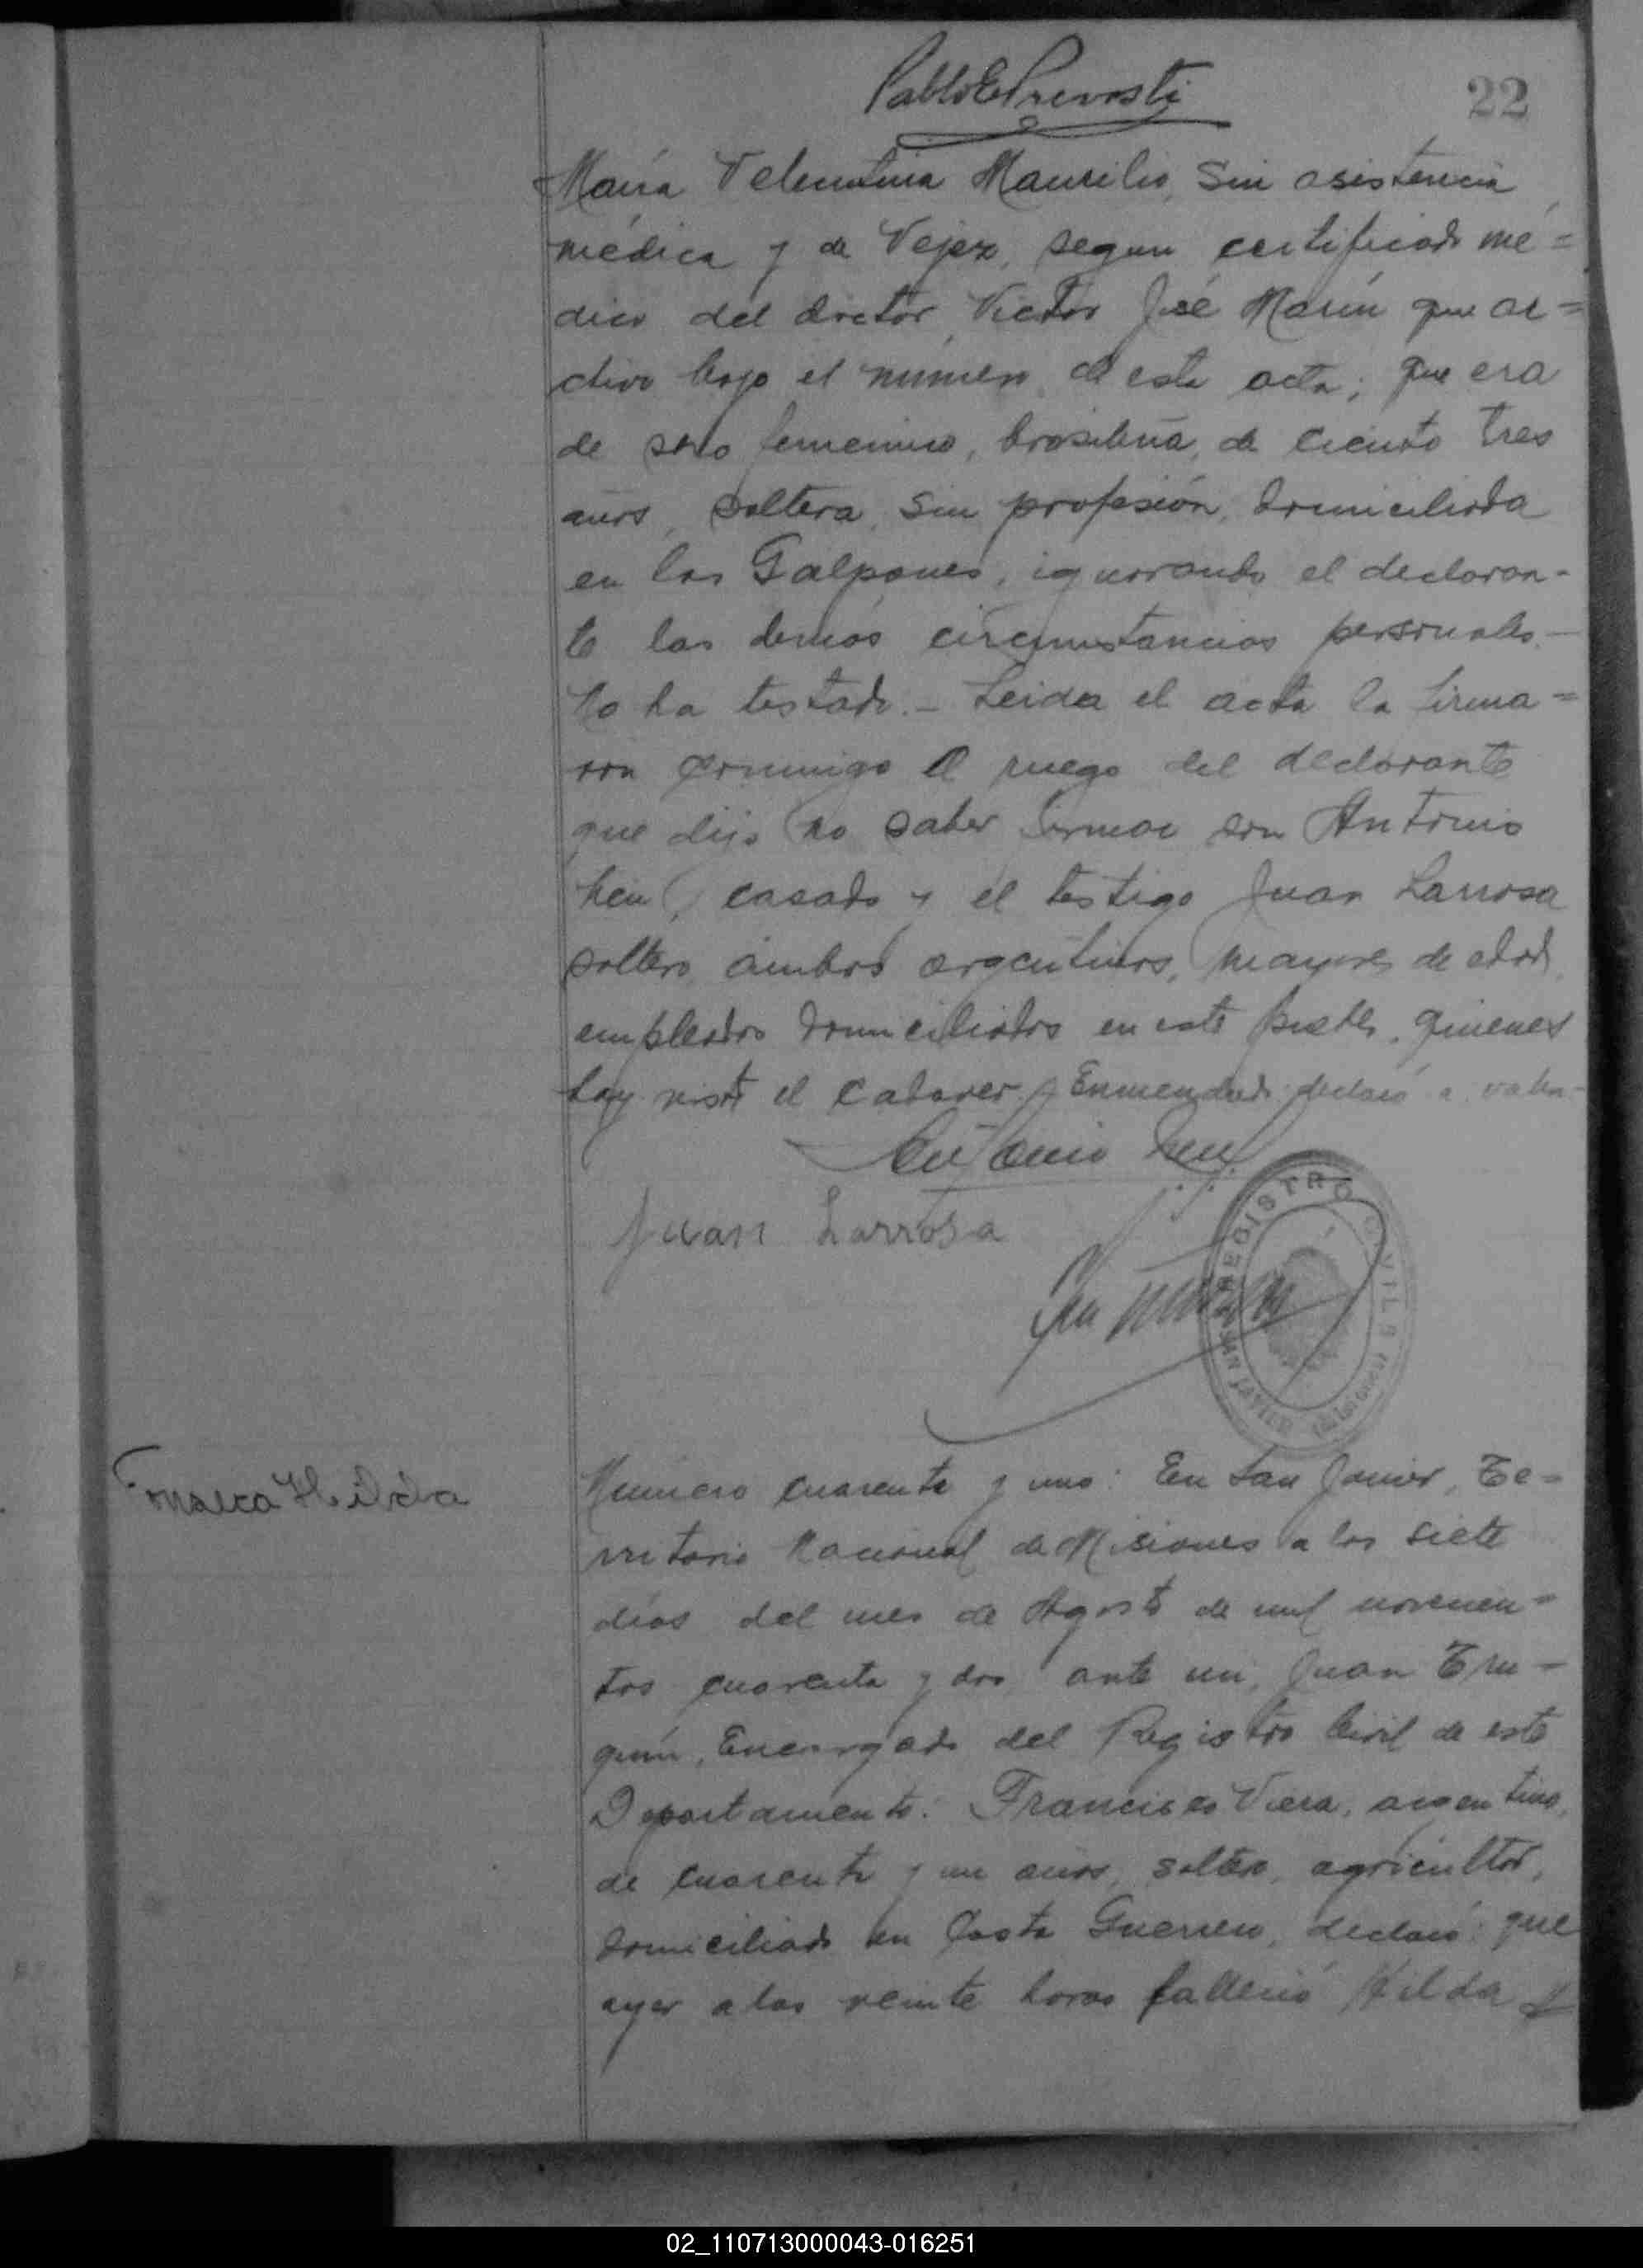 Pablo E Prevosti
22
María Velentina Maurilio, Sin asistencia
médica y de Vejez, segun certificado mé=
dico del doctor Victor José Marín que ar=
chivo bajo el número de esta acta; que era
de sexo femenino, brasileña, de ciento tres
años, soltera, Sin profesión, domiciliada
en los Galpones, ignorando el declaran-
te las demás circunstancias personales.-
No ha testado.- Leida el acta la firma=
ron conmigo a ruego del declarante
que dijo no saber firmar don Antonio
casado y el testigo Juan Larrosa
soltero, ambos argentinos, mayores de edad,
empleados domiciliados en este pueblo, quienes
han visto el cadaver. Enmendado: declaró: vale.-
Antonio
Juan Larrosa
REGISTRO CIVIL
SAN JAVIER (MISIONES)
Fonseca Hilda
Número cuarenta y uno: En San Javier, Te=
rritorio Nacional de Misiones a los siete
días del mes de Agosto de mil novecien=
tos cuarenta y dos, ante mi, Juan Tru-
quin, Encargado del Registro Civil de este
Departamento: Francisco Viera, argentino,
de cuarenta y un años, soltero, agricultor,
domiciliado en Costa Guerrero, declaró: que
ayer a las veinte horas falleció Hilda
02_110713000043-016251